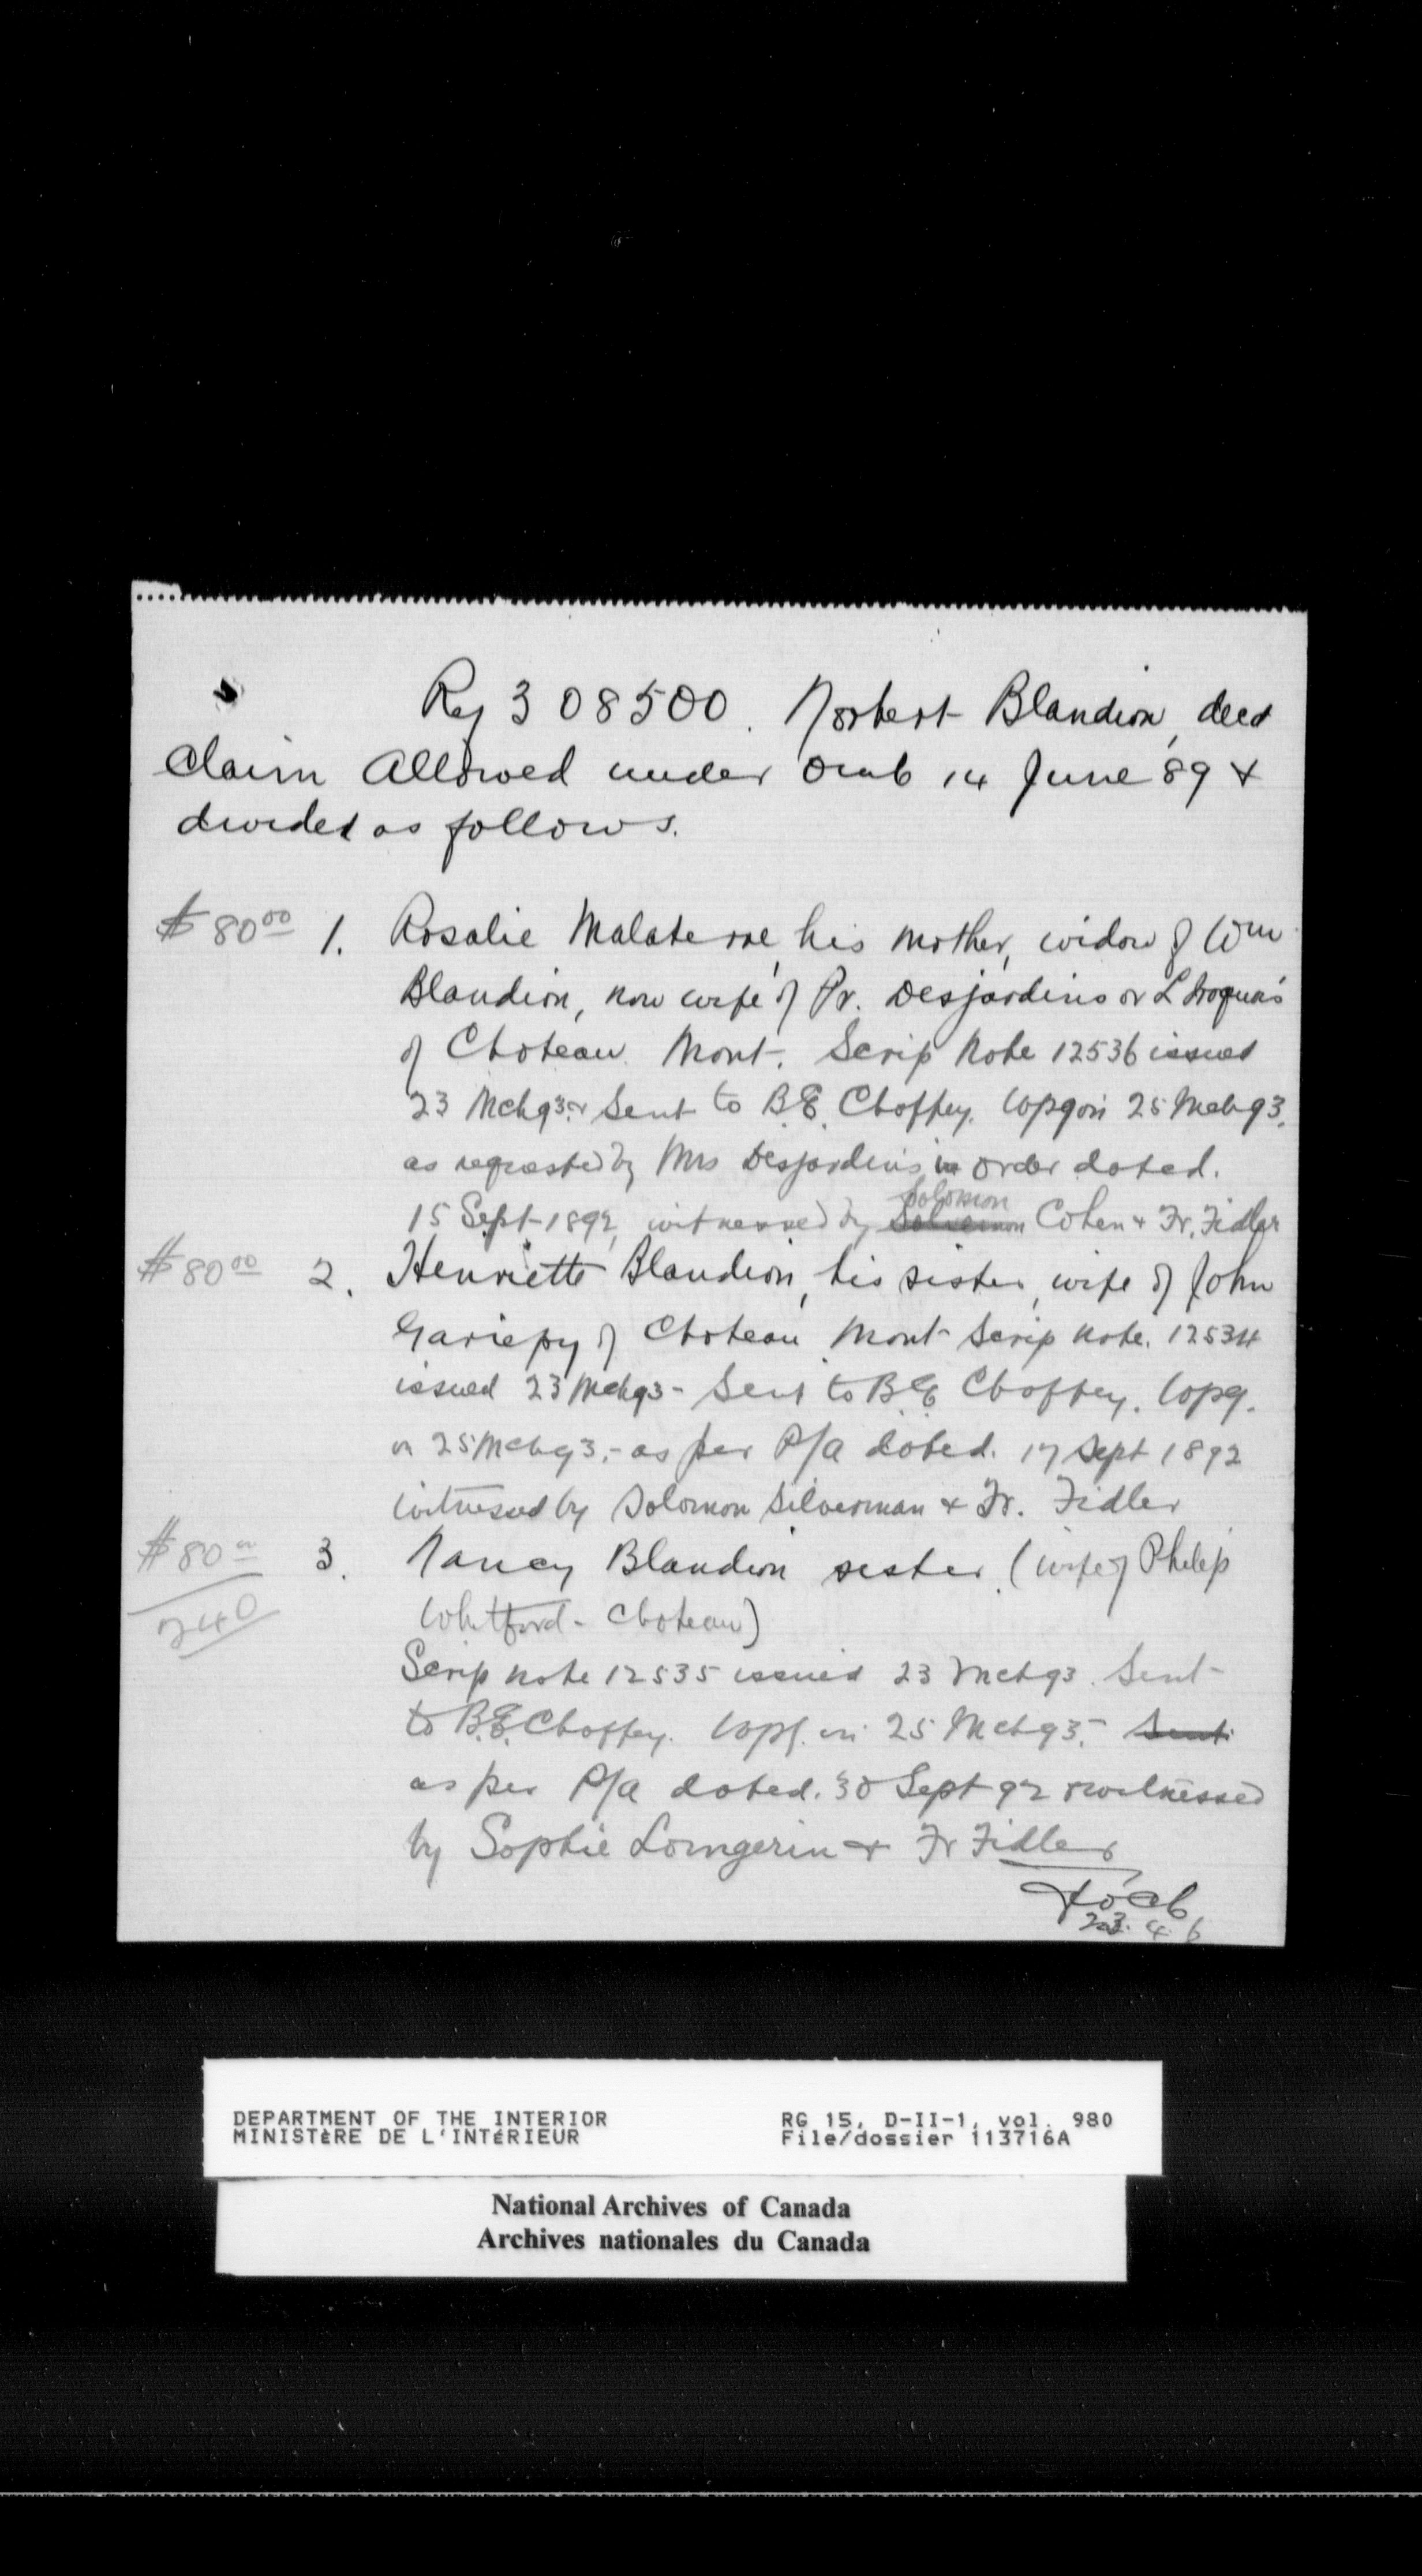 Reg 308500. Norbert Blandion, decd
Claim Allowed under 14 June 89 &
divided as follows.
$80 00 1. Rosalie Malaterre, his mother, widow of Wm
Blandion, now wife of Pr. Desjardins or L'Iroquois
of Choteau Mont. Scrip Note 12536 issued
23 Mch 93 & Sent to B.E. Choffey. Wpg on 25 Mch 93.
as requested by Mrs Desjardins in order dated.
15 Sept 1892, witnessed by Solomon Cohen & Fr. Fidler
$80 00 2. Henriette Blandion, his sister, wife of John
Gariepy of Choteau Mont Scrip note. 12534
issued 23 Mch 93 - Sent to B E Choffey. Wpg.
on 25 Mch 93. - as per P/A dated. 17 Sept 1892
witnessed by Solomon Silverman & Fr. Fidler
$80 00 3. Nancy Blandion sister. (wife of Philip
240 Whitford - Choteau)
Scrip note 12535 issued 23 Mch 93. Sent
to B.E. Choffey. Wpg. on 25 Mch 93. - Sent
as per P/A dated. 30 Sept 92 & witnessed
by Sophie Loingerin & Fr Fidler
23. 4. 6
DEPARTMENT OF THE INTERIOR RG 15, D-II-1, vol. 980
MINISTÈRE DE L'INTÉRIEUR File/dossier 113716A
National Archives of Canada
Archives nationales du Canada